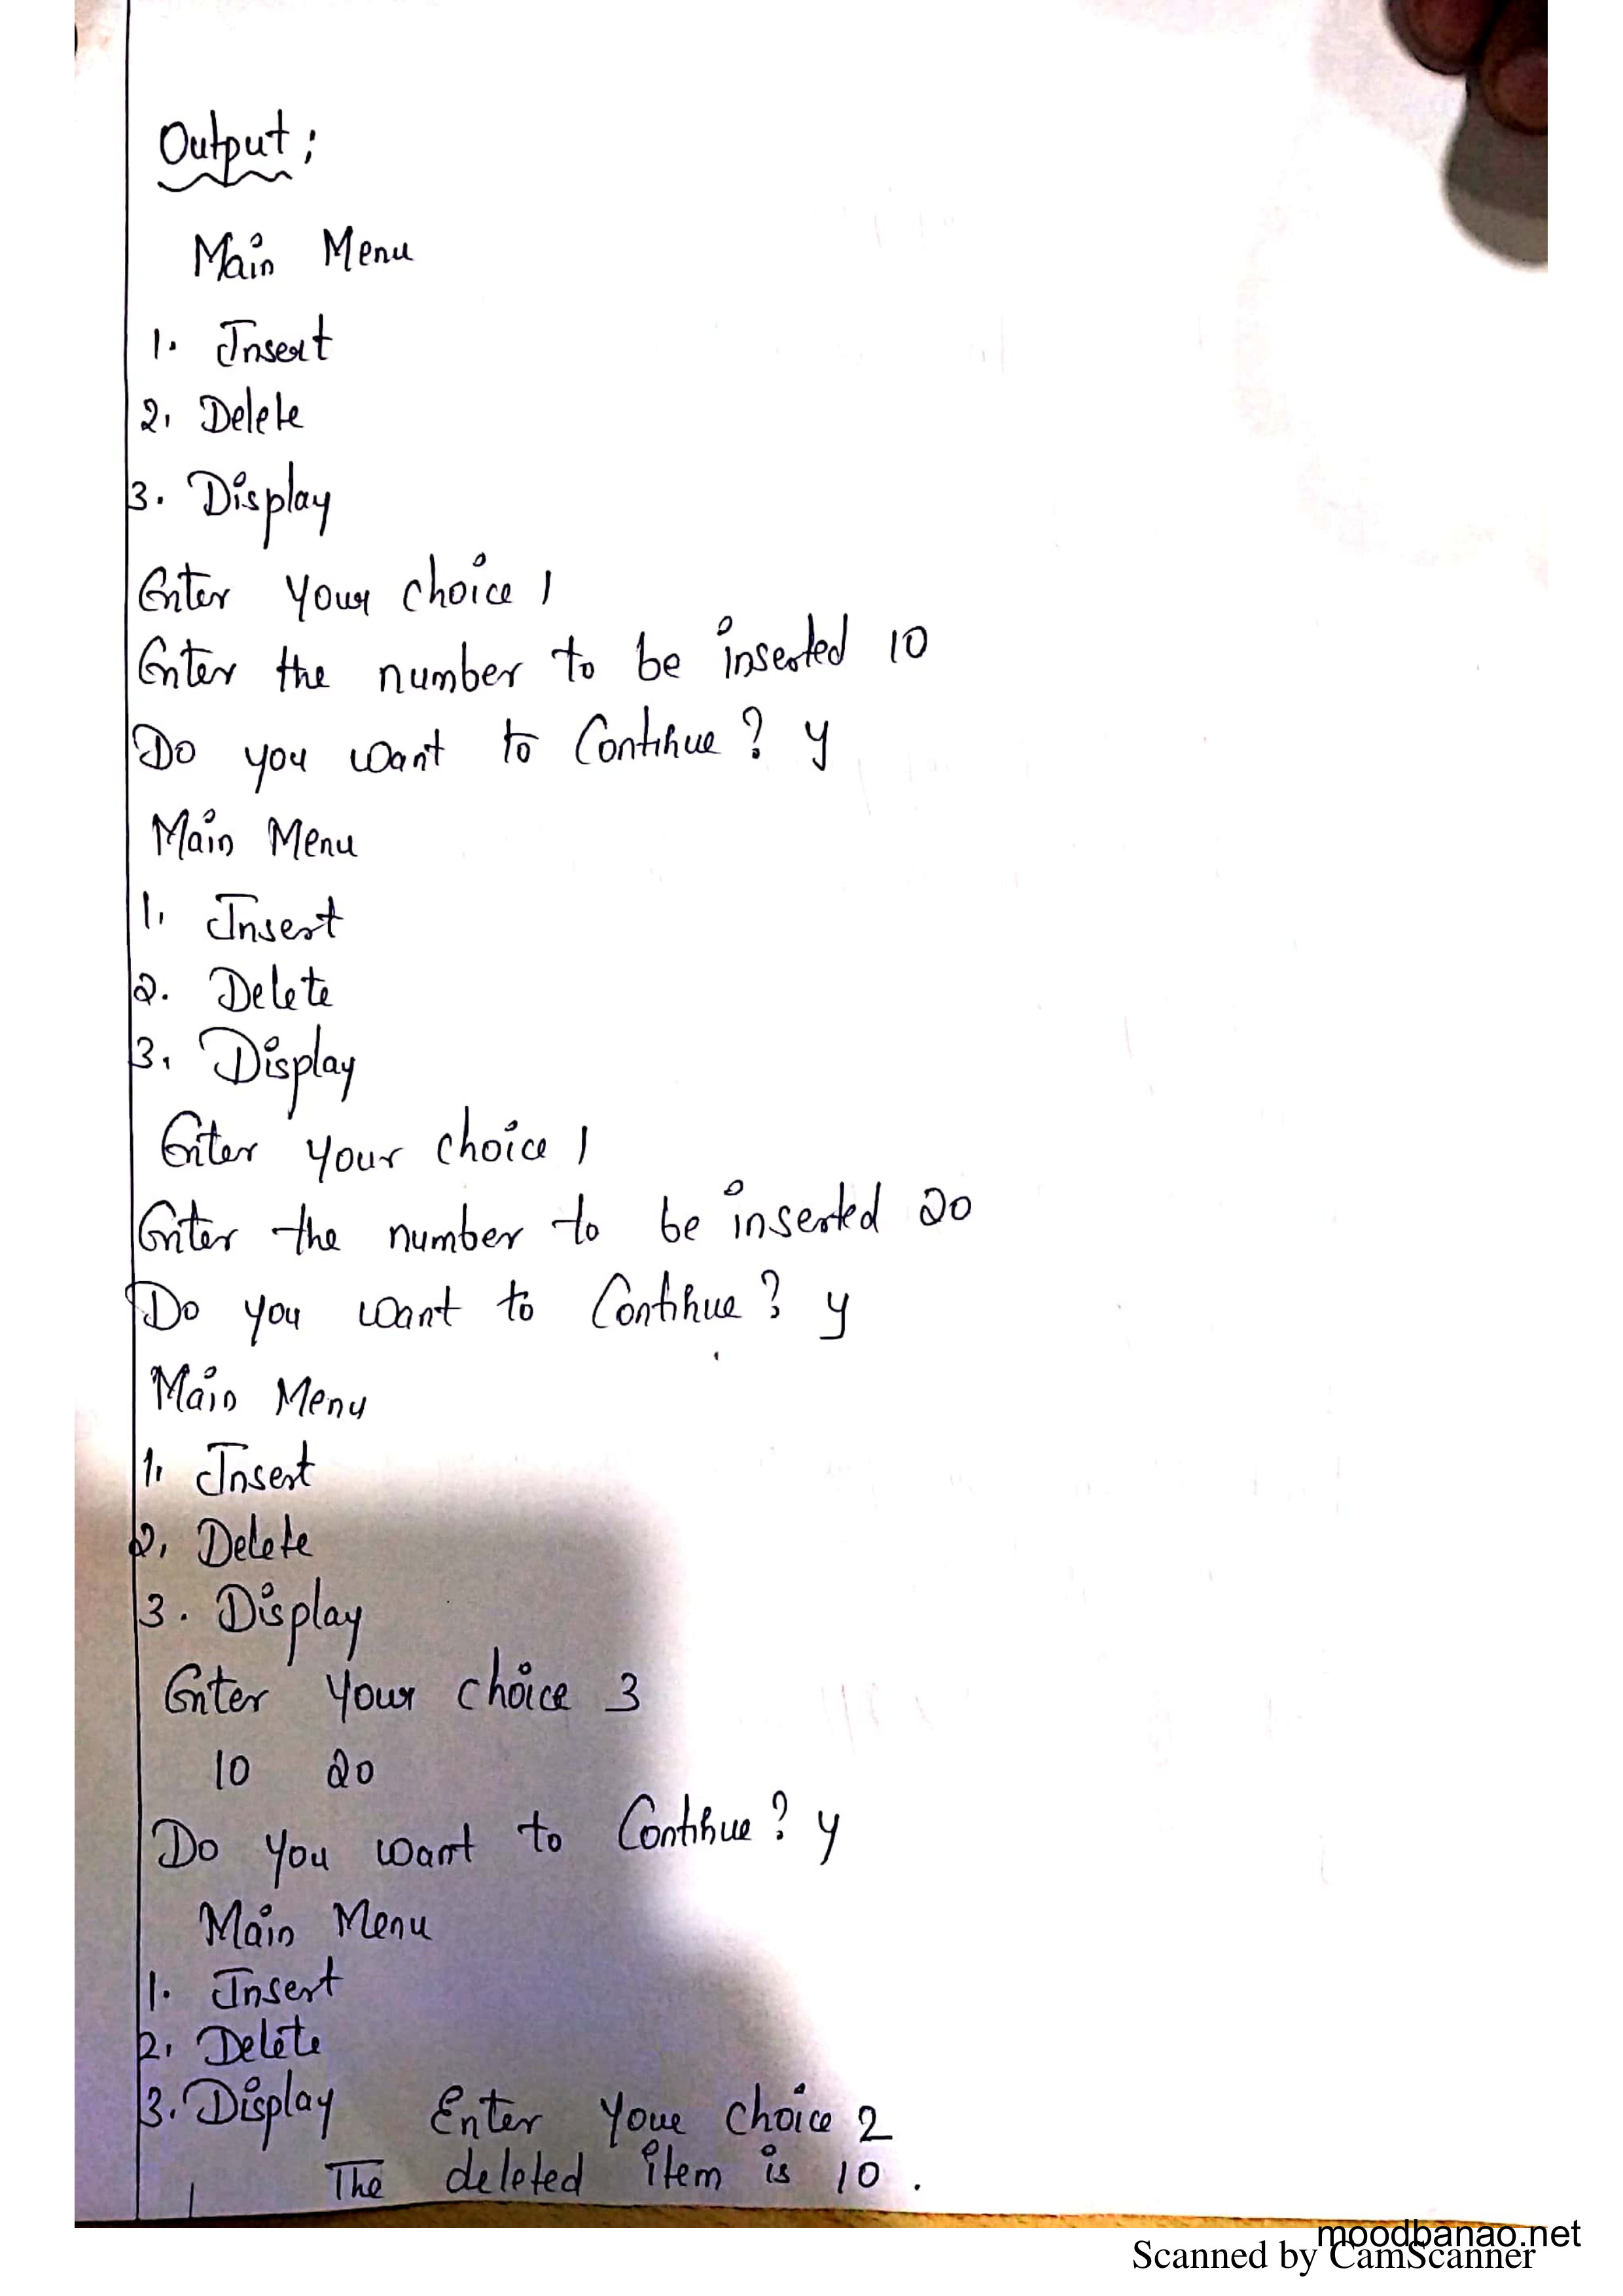 Output;
Main Menu
1. Insert
2. Delete
3. Display
Enter your choice 1
Enter the number to be inserted 10
Do you want to Continue ? y
Main Menu
1. Insert
2. Delete
3. Display
Enter your choice 1
Enter the number to be inserted 20
Do you want to Continue ? y
Main Menu
1. Insert
2. Delete
3. Display
Enter your choice 3
10 20
Do you want to Continue ? y
Main Menu
1. Insert
2. Delete
3. Display Enter your choice 2
The deleted item is 10.
moodbanao.net
Scanned by CamScanner